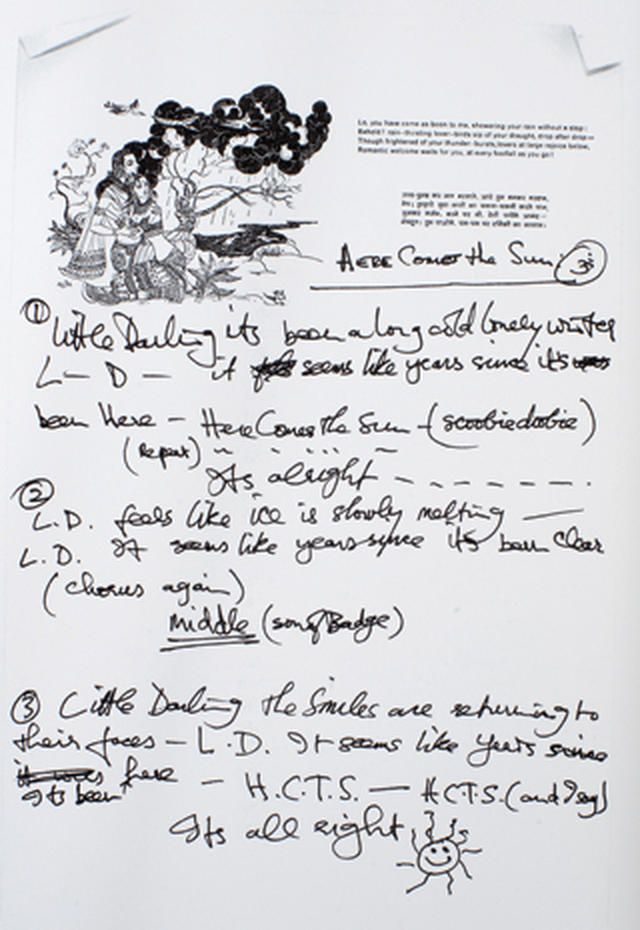 Lo, you have come as boon to me, showering your rain without a stop:
Behold! rain-thirsting lover-birds sip of your draught, drop after drop—
Though frightened of your thunder-bursts, lovers at large rejoice below,
Romantic welcome waits for you, at every footfall as you go!
HERE Comes the Sun. 3
① Little Darling its been a long cold lonely winter
L — D — it seems like years since it's
been Here — Here Comes the Sun — (scoobiedoobie)
(Repeat)
Its alright — — — — — — — .
②
L.D. feels like ice is slowly melting —
L.D. It seems like years since its been clear
(Chorus again)
middle (song Badge)
③ Little Darling the Smiles are returning to
their faces — L.D. It seems like years since
it was here — H.C.T.S. — H.C.T.S. (and I say)
Its been
Its all right